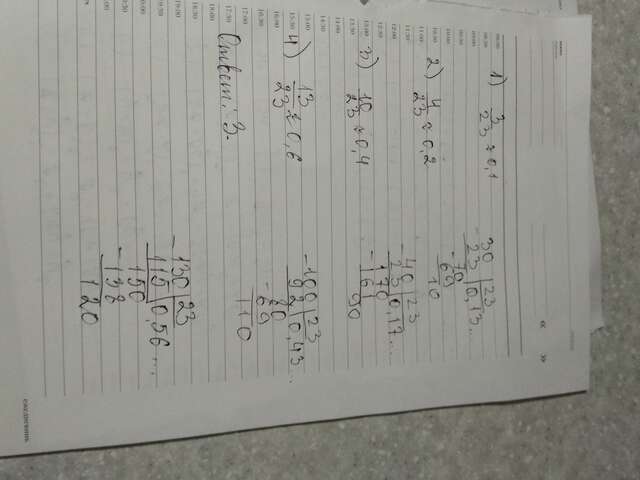 « »
1) 3/23 ≈ 0,1
30 | 23
- 23 | 0,13...
70
- 69
10
2) 4/23 ≈ 0,2
40 | 23
- 23 | 0,17...
170
- 161
90
3) 10/23 ≈ 0,4
100 | 23
- 92 | 0,43...
80
- 69
110
4) 13/23 ≈ 0,6
130 | 23
- 115 | 0,56...
150
- 138
120
Ответ: 3.
ежедневник